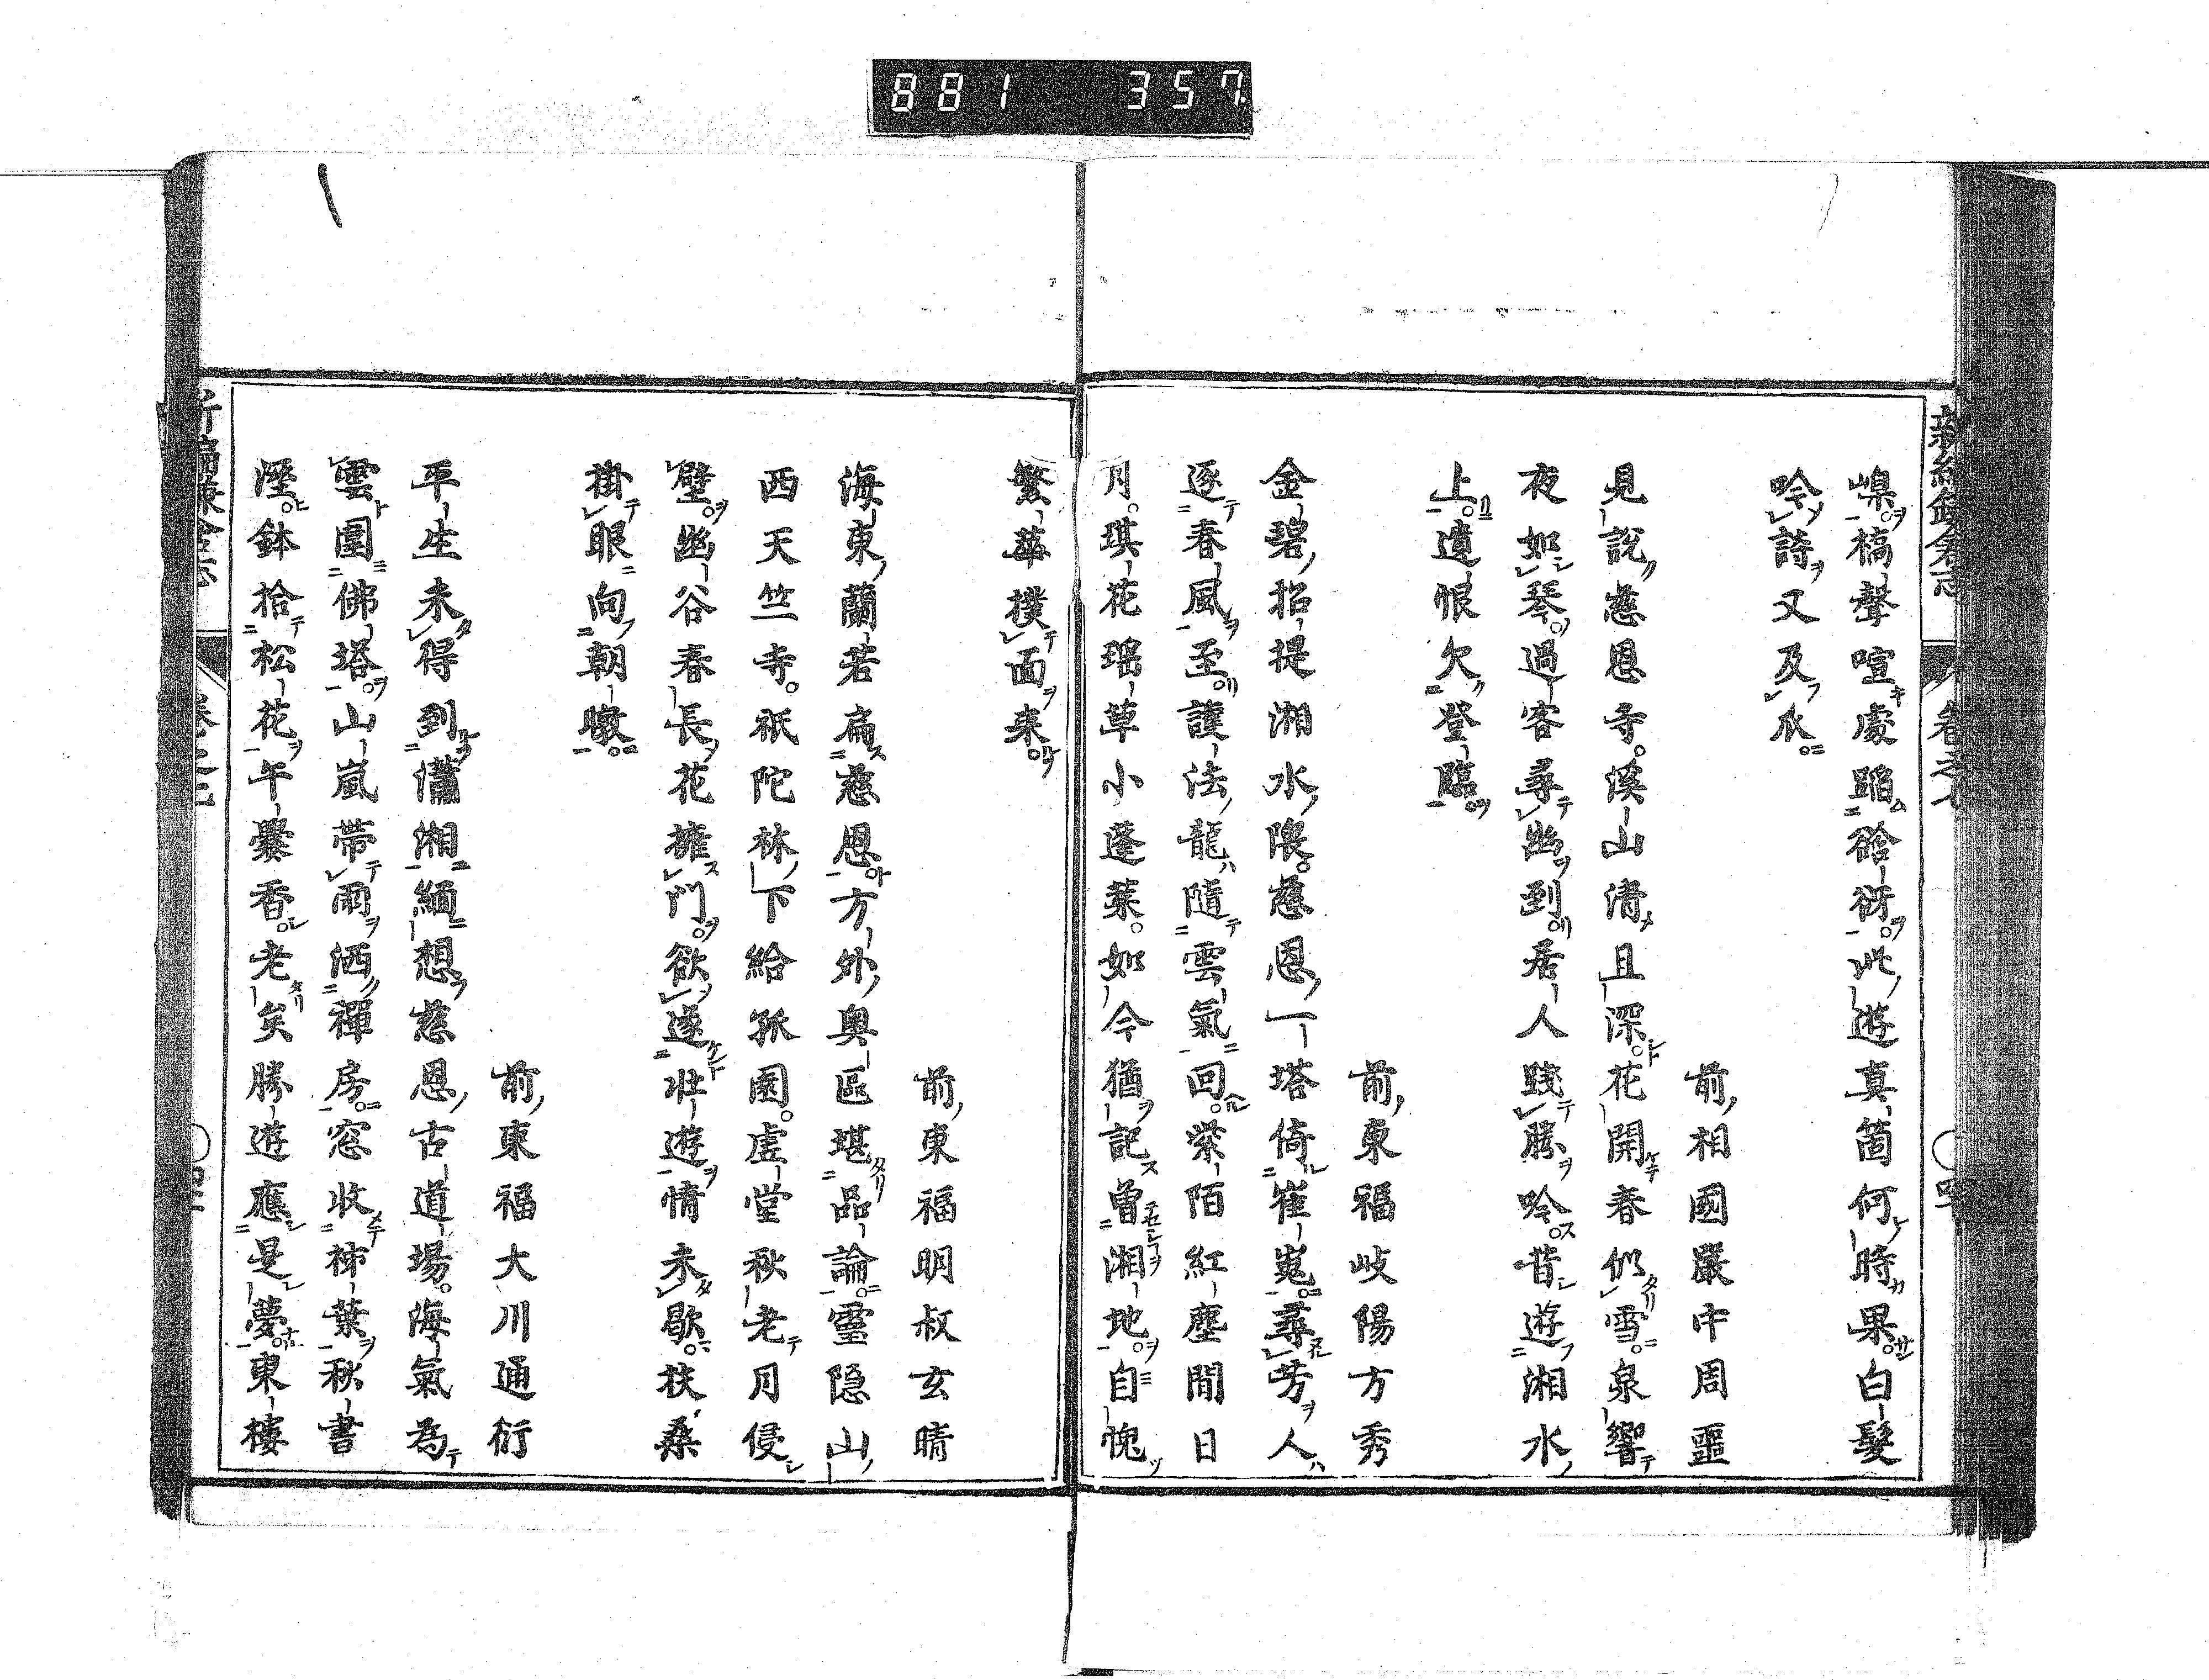 881 357
嵲橋聲喧處蹈谽谺此遊真箇何時果白髮
吟詩又及瓜
前相國嚴中周噩
見說慈恩寺溪山清且深花開春似雪泉響
夜如琴過客尋幽到居人踐勝吟昔遊湘水
上遺恨欠登臨
前東福岐陽方秀
金碧招提湘水隈慈恩一塔倚崔嵬尋芳人
逐春風至護法龍隨雲氣回紫陌紅塵閒日
月琪花瑶草小蓬萊如今猶記曽湘地自愧
繁華撲面来
前東福明叔玄晴
海東蘭若扁慈恩方外奥區堪品論靈隠山
西天竺寺祇陀林下給孤園虗堂秋老月侵
壁幽谷春長花擁門欲遂壯遊情未歇扶桑
掛眼向朝暾
前東福大川通衍
平生未得到瀟湘緬想慈恩古道場海氣為
雲圍佛塔山嵐帯雨洒禪房窓收柿葉秋書
溼鉢拾松花午爨香老矣勝遊應是夢東樓